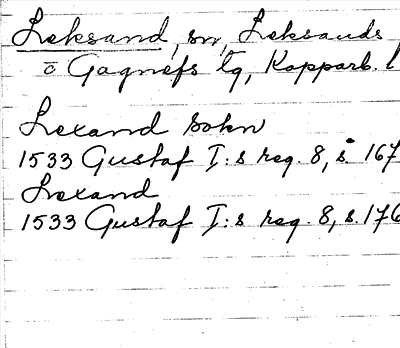 Leksand, sn, Leksands
o Gagnefs tg, Kopparb. l
Lexand sokn
1533 Gustaf I:s reg. 8, s. 167
Lexand
1533 Gustaf I:s reg. 8, s. 176